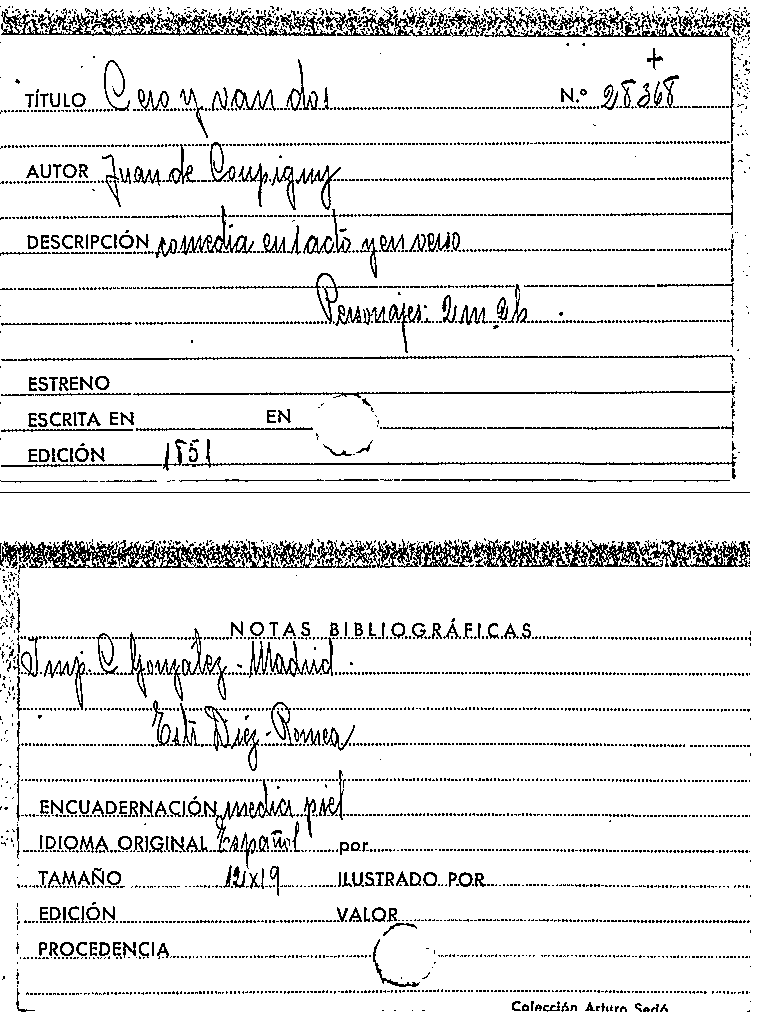 +
TÍTULO Cero y van dos N.º 28368
AUTOR Juan de Coupigny
DESCRIPCIÓN comedia en 1 acto y en verso
Personajes: 2 m. 2 h.
ESTRENO
ESCRITA EN EN
EDICIÓN 1851
NOTAS BIBLIOGRÁFICAS
Imp. C. González - Madrid.
Díez - Romea
ENCUADERNACIÓN media piel
IDIOMA ORIGINAL Español por
TAMAÑO 12x19 ILUSTRADO POR
EDICIÓN VALOR
PROCEDENCIA
Colección Arturo Sedó